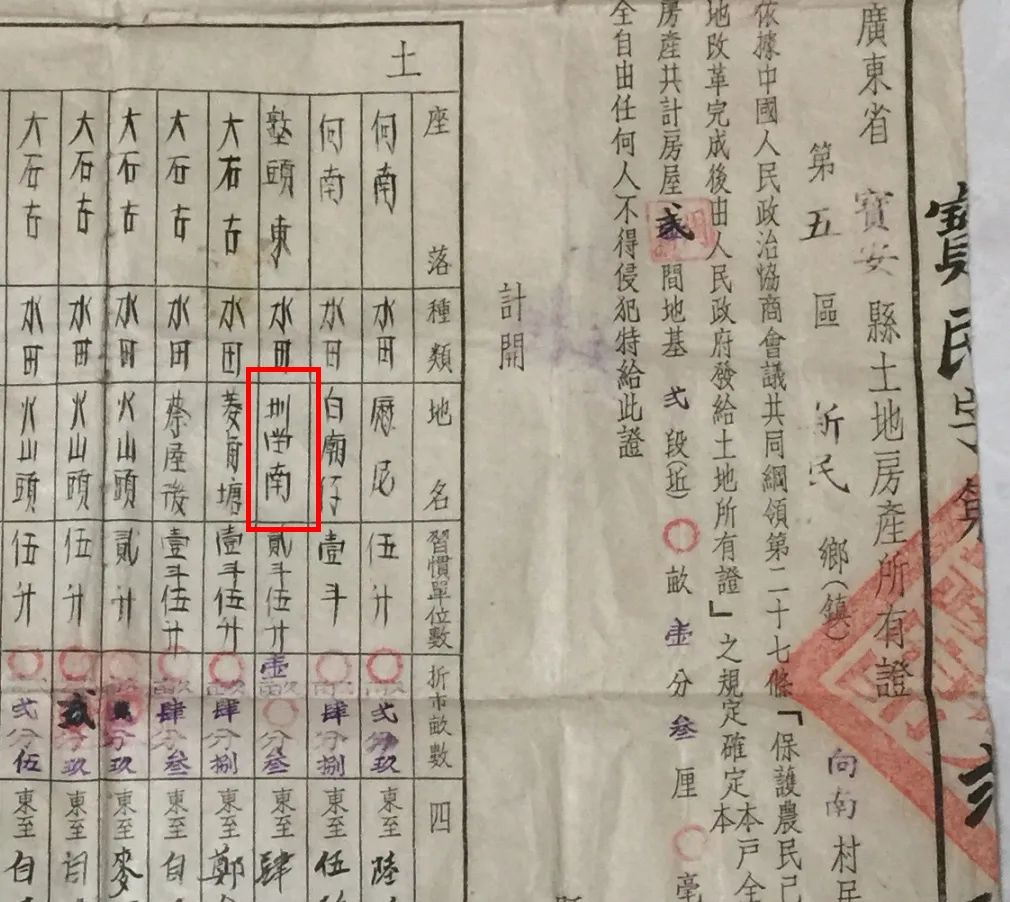 廣東省寶安縣土地房產所有證
第五區新民鄉(鎮)向南村居
依據中國人民政治協商會議共同綱領第二十七條「保護農民已
地改革完成後由人民政府發給土地所有證」之規定確定本戶全
房產共計房屋弍間地基弍段(坵)〇畝壹分叁厘〇毫
全自由任何人不得侵犯特給此證
計開
土
座落 種類 地名 習慣單位數 折市畝數 四
何南 水田 伍升 〇畝弍分玖 東至陸
何南 水田 白廟仔 壹斗 〇畝肆分捌 東至伍
塹頭東 水田 圳南 貳斗伍升 壹畝〇分叁 東至肆
大石古 水田 菱角塘 壹斗伍升 〇畝肆分捌 東至鄭
大石古 水田 蔡屋後 壹斗伍升 〇畝肆分叁 東至自
大石古 水田 火山頭 貳升 〇 分玖 東至麥
大石古 水田 火山頭 伍升 〇 弍分玖 東至自
大石古 水田 火山頭 伍升 〇畝弍分伍 東至自